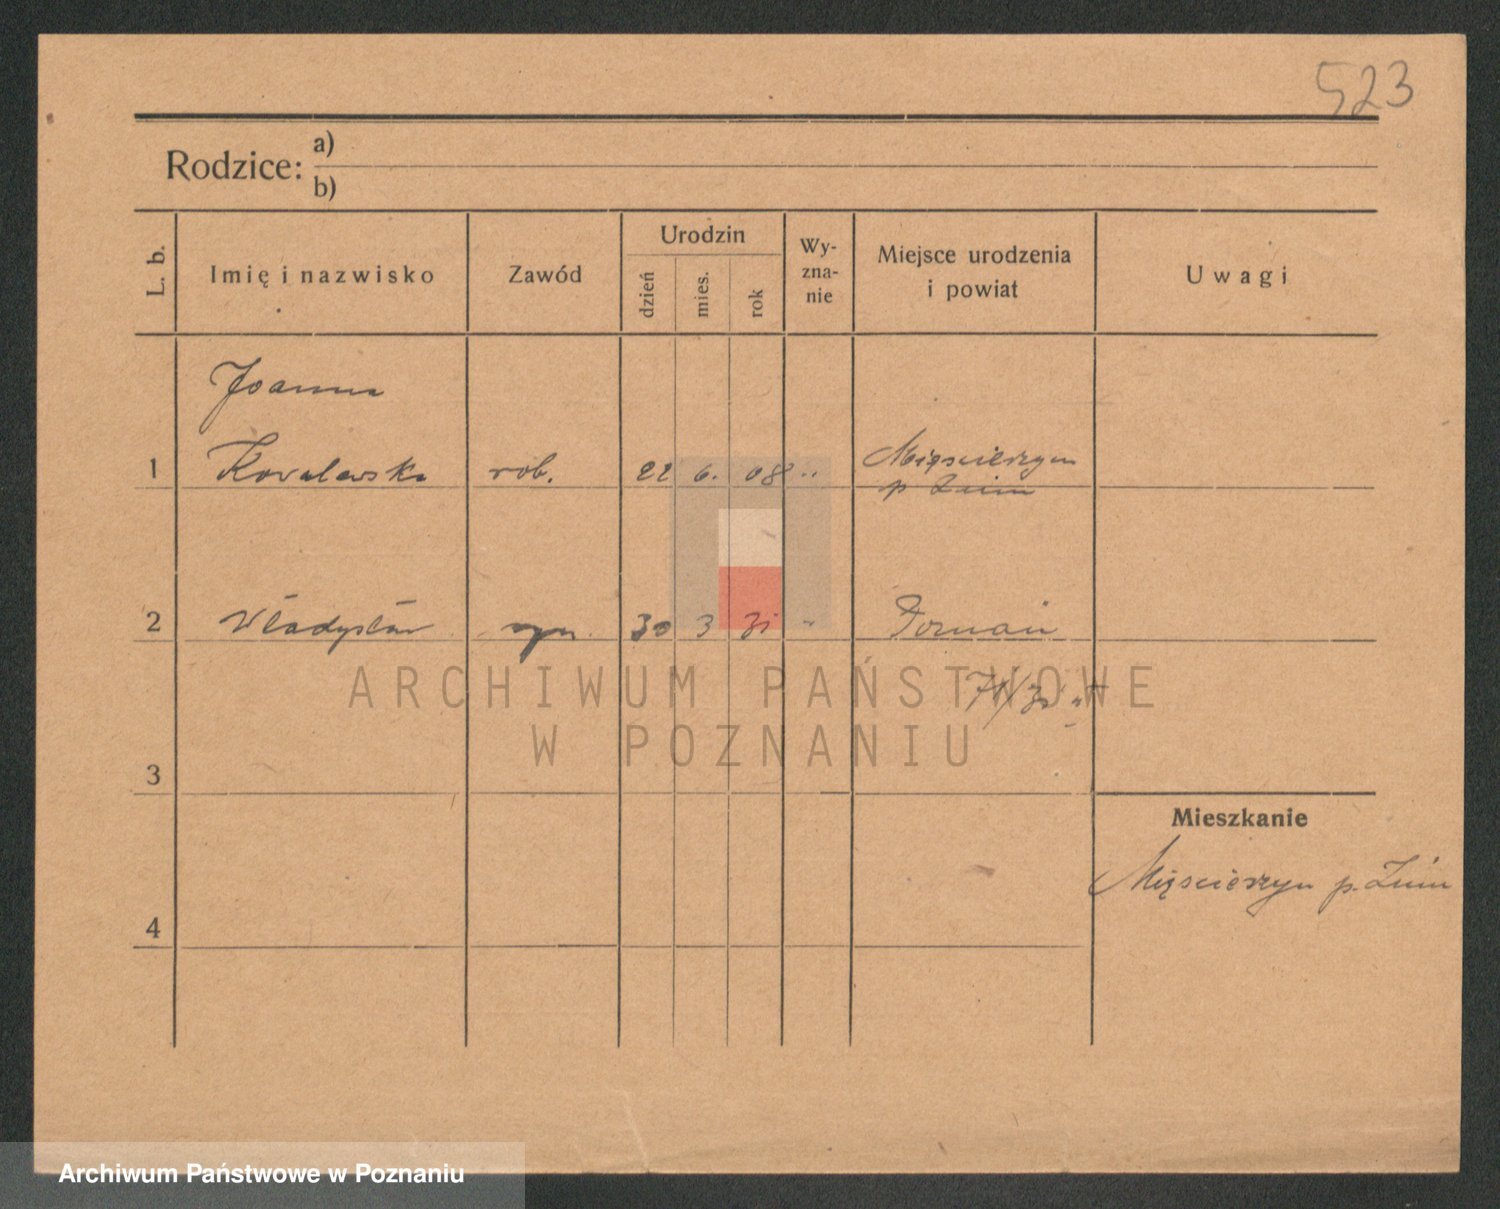 523
Rodzice: a)
b)
L. b.
Imię i nazwisko
Zawód
Urodzin
dzień
mies.
rok
Wy-
zna-
nie
Miejsce urodzenia
i powiat
Uwagi
Joanna
1 Kowalewska rob. 22 6. 08 " Mięscierzyn
p Żnin
2 Władysław syn 30 3 31 " Poznań
3
Mieszkanie
Mięscierzyn p. Żnin
4
ARCHIWUM PAŃSTWOWE
W POZNANIU
Archiwum Państwowe w Poznaniu